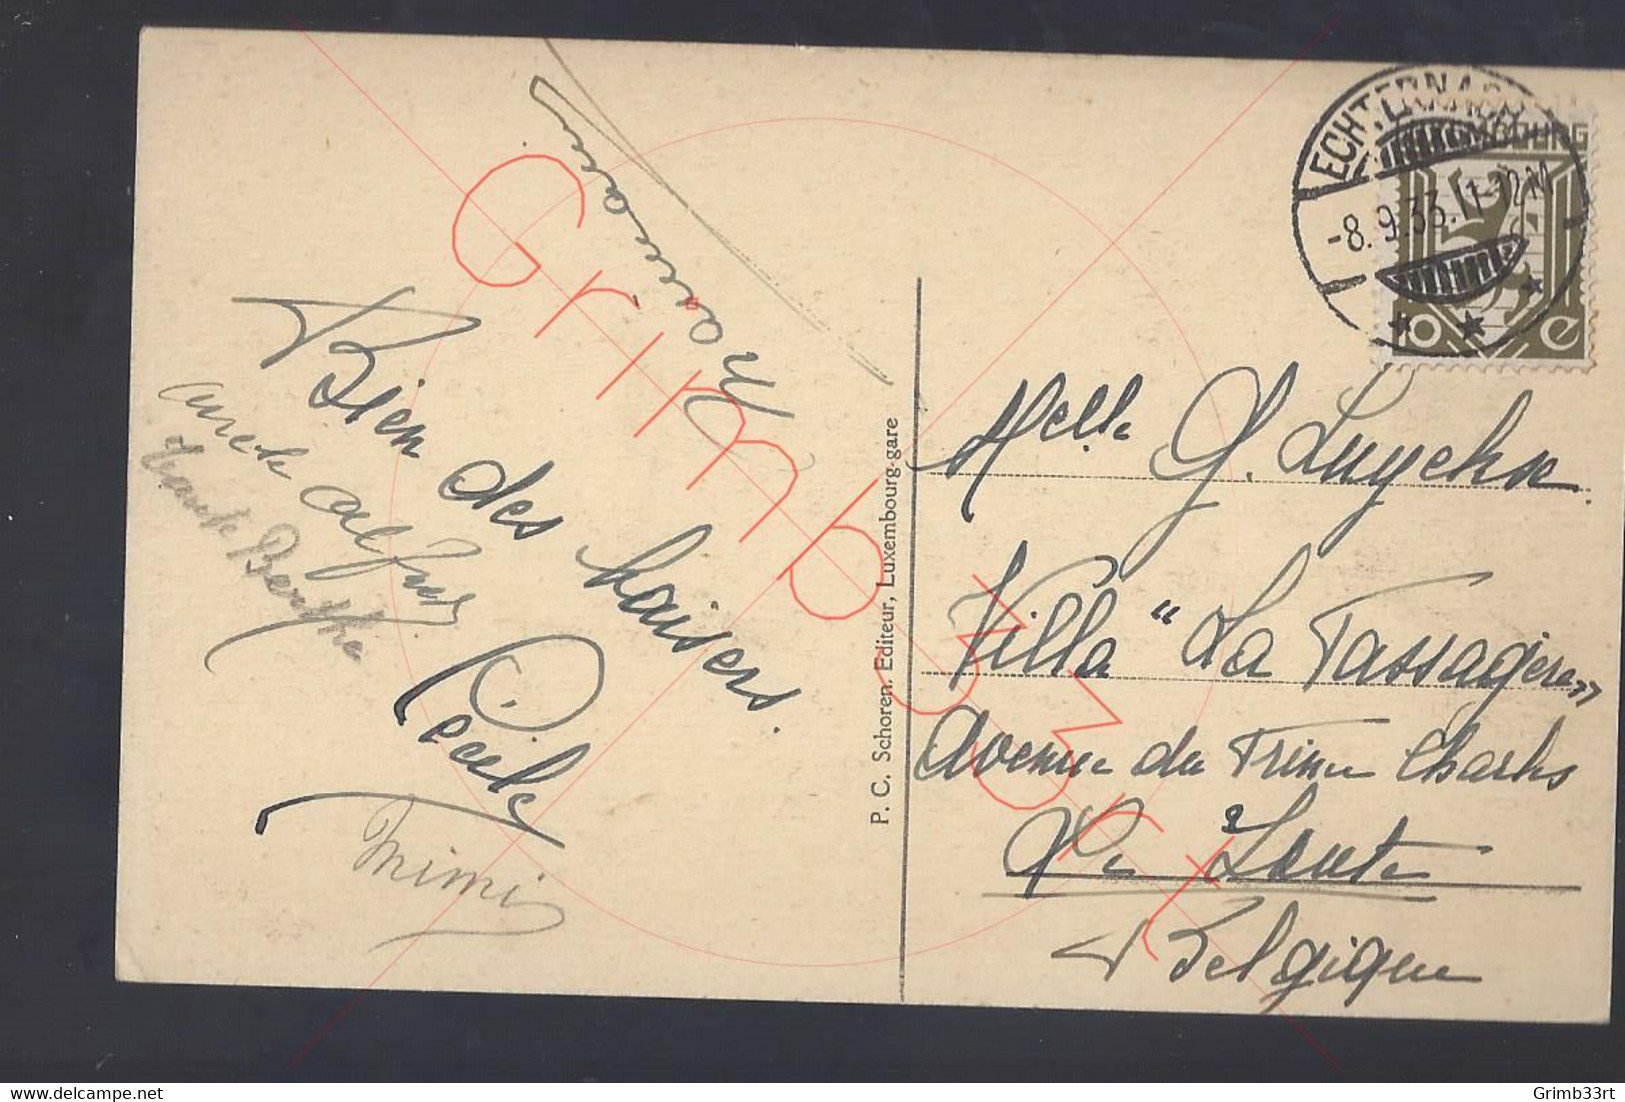 Bien des baisers.
Cécile
oncle Alfons
tante Berthe
Mimi
P. C. Schoren. Editeur, Luxembourg-gare
ECHTERNACH
-8.9.33.11-12M
LUXEMBOURG
10 c
Melle G. Luyckx
Villa "La Passagère"
Avenue du Prince Charles
Le Zoute
Belgique
Grimb33rt
Grimb33rt